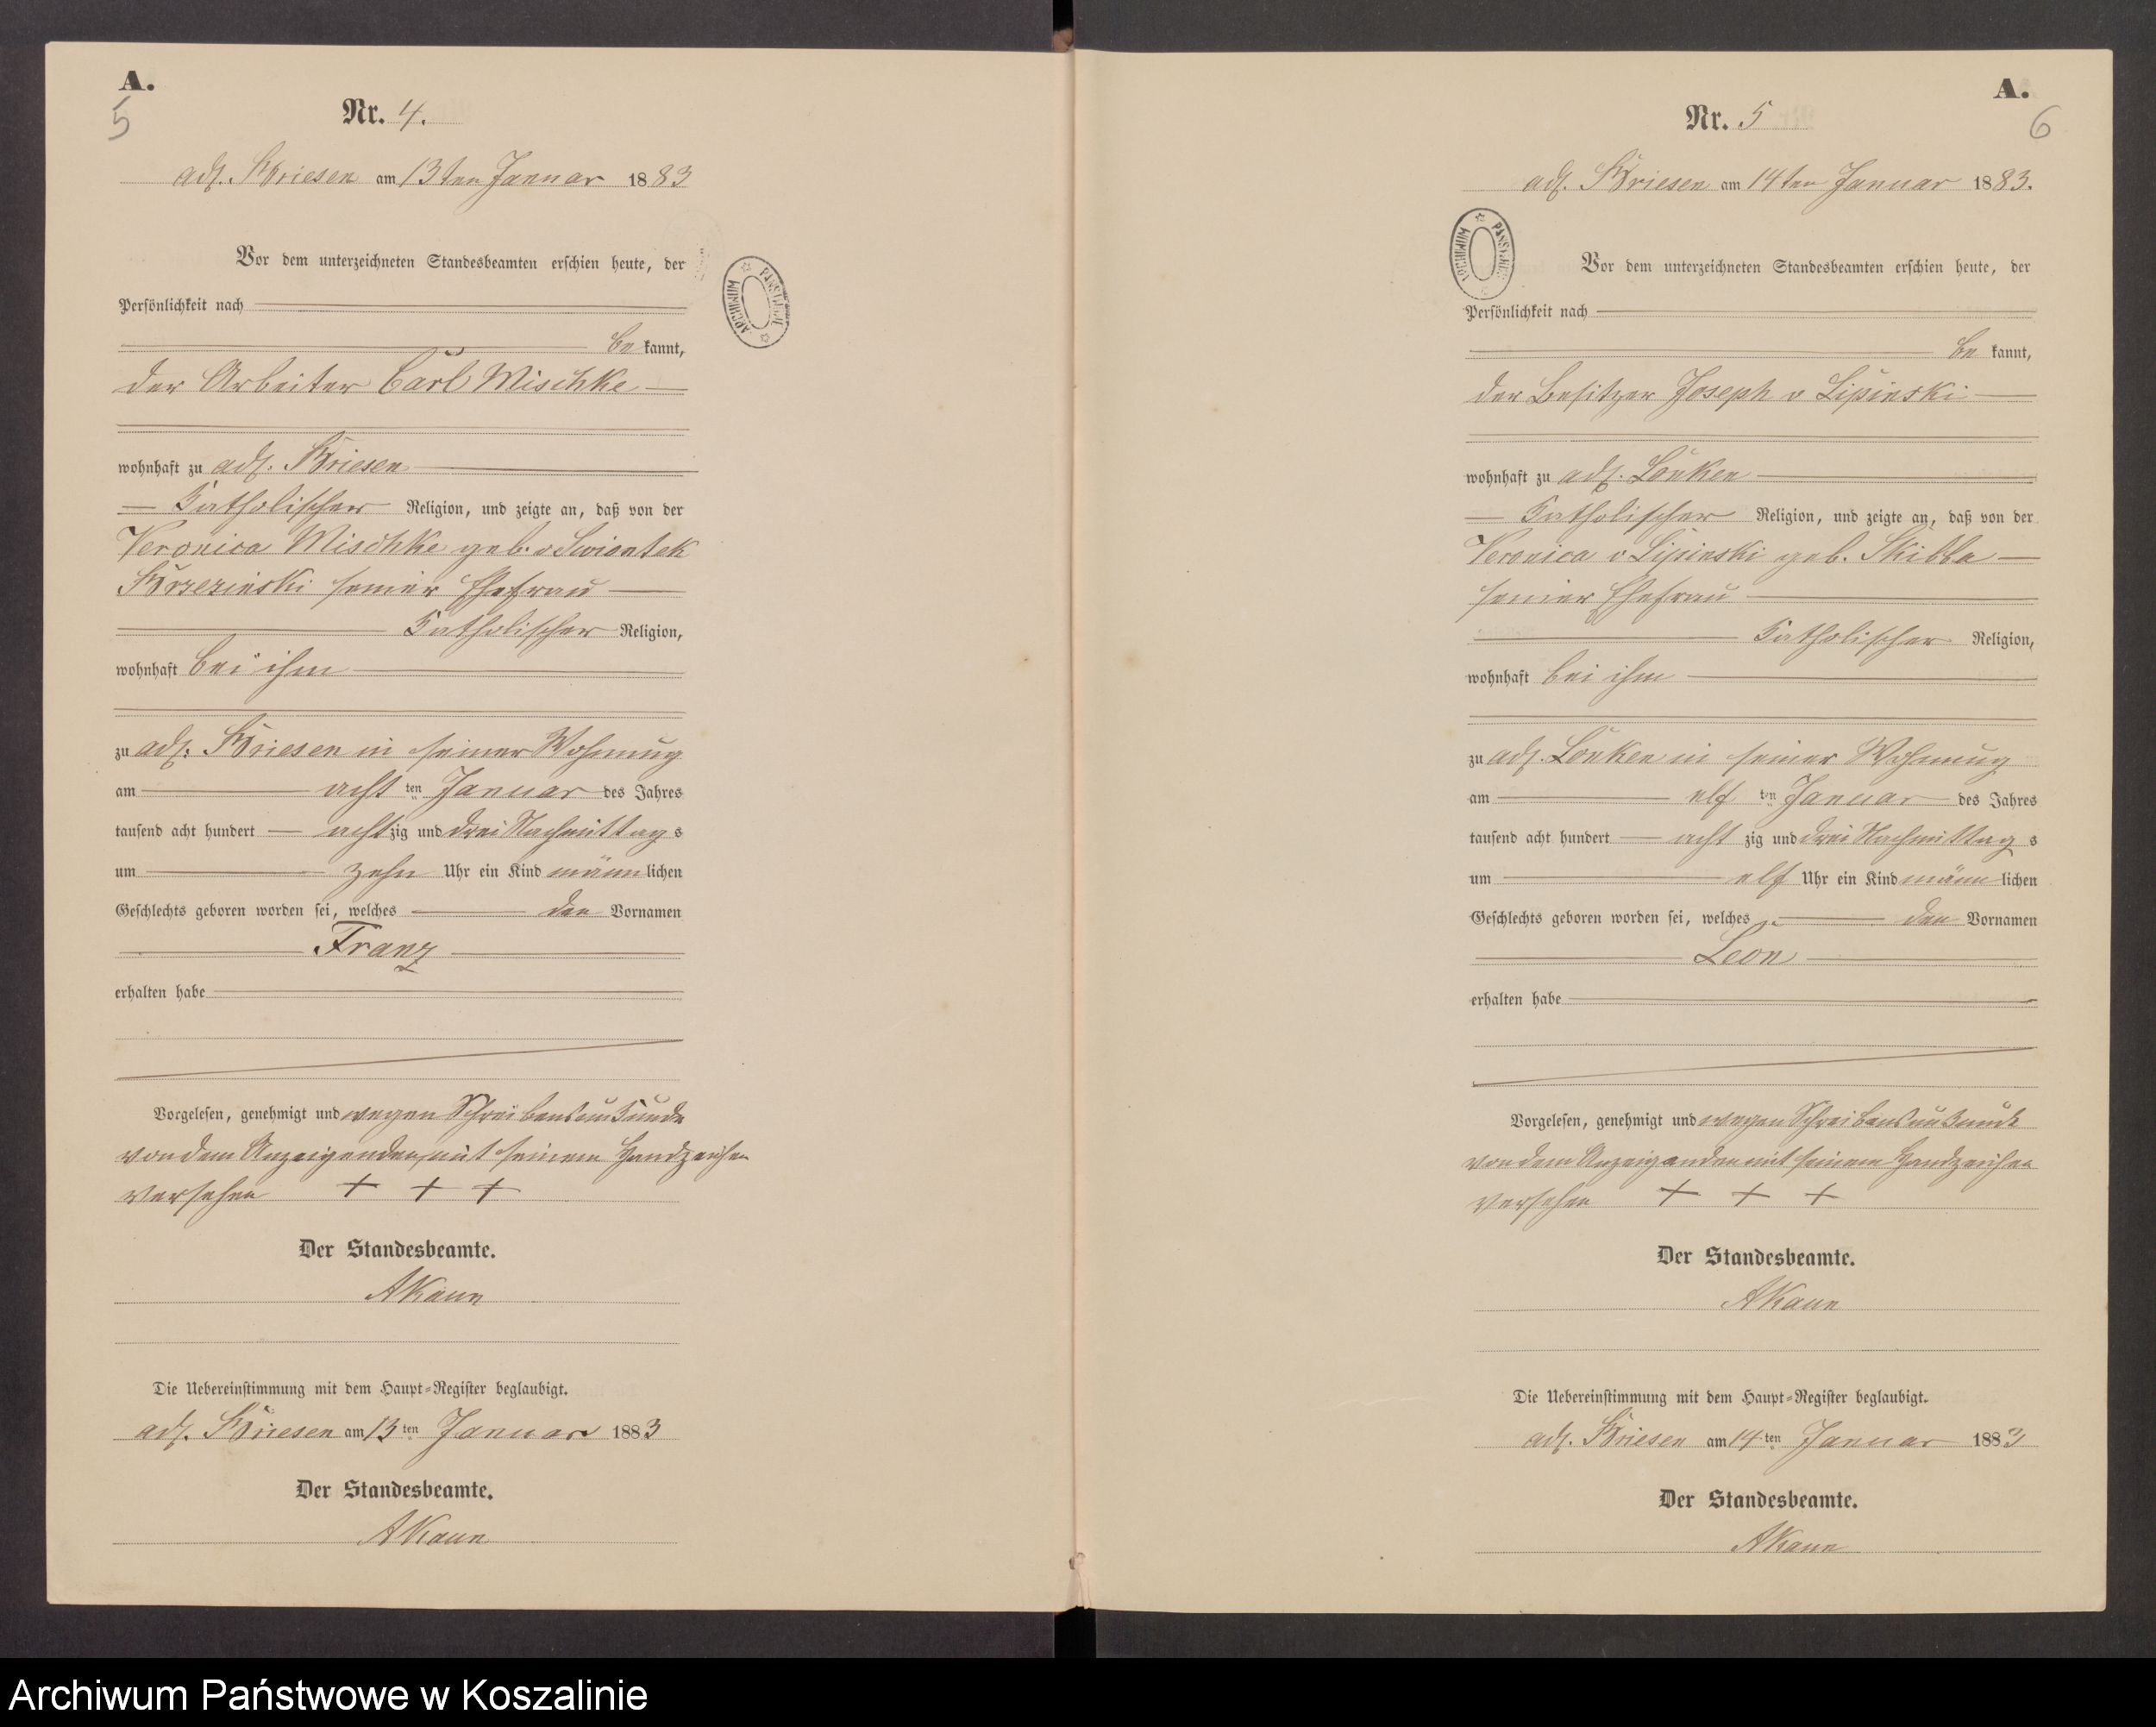 A.
5
Nr. 4.
adl. Briesen am 13ten Januar 1883
Vor dem unterzeichneten Standesbeamten erschien heute, der
Persönlichkeit nach
be kannt,
der Arbeiter Carl Mischke
wohnhaft zu adl. Briesen
Katholischer Religion, und zeigte an, daß von der
Veronica Mischke geb. v Swiontek
Brzezinski seiner Ehefrau
Katholischer Religion,
wohnhaft bei ihm
zu adl. Briesen in seiner Wohnung
am acht ten Januar des Jahres
tausend acht hundert achtzig und drei Nachmittags
um zehn Uhr ein Kind männlichen
Geschlechts geboren worden sei, welches den Vornamen
Franz
erhalten habe
Vorgelesen, genehmigt und wegen Schreibensunkunde
von dem Anzeigenden mit seinem Handzeichen
versehen + + +
Der Standesbeamte.
AKaun
Die Uebereinstimmung mit dem Haupt-Register beglaubigt.
adl. Briesen am 13 ten Januar 1883
Der Standesbeamte.
AKaun
ARCHIWUM PAŃSTWOWE
A.
6
Nr. 5
adl. Briesen am 14ten Januar 1883.
ARCHIWUM PAŃSTWOWE
Vor dem unterzeichneten Standesbeamten erschien heute, der
Persönlichkeit nach
be kannt,
der Besitzer Joseph v Lipinski
wohnhaft zu adl. Lonken
Katholischer Religion, und zeigte an, daß von der
Veronica v Lipinski geb. Skibba
seiner Ehefrau
Katholischer Religion,
wohnhaft bei ihm
zu adl. Lonken in seiner Wohnung
am elf ten Januar des Jahres
tausend acht hundert acht zig und drei Nachmittag s
um elf Uhr ein Kind männ lichen
Geschlechts geboren worden sei, welches den Vornamen
Leon
erhalten habe
Vorgelesen, genehmigt und wegen Schreibensunkunde
von dem Anzeigenden mit seinem Handzeichen
versehen + + +
Der Standesbeamte.
AKaun
Die Uebereinstimmung mit dem Haupt-Register beglaubigt.
adl. Briesen am 14 ten Januar 1883
Der Standesbeamte.
AKaun
Archiwum Państwowe w Koszalinie